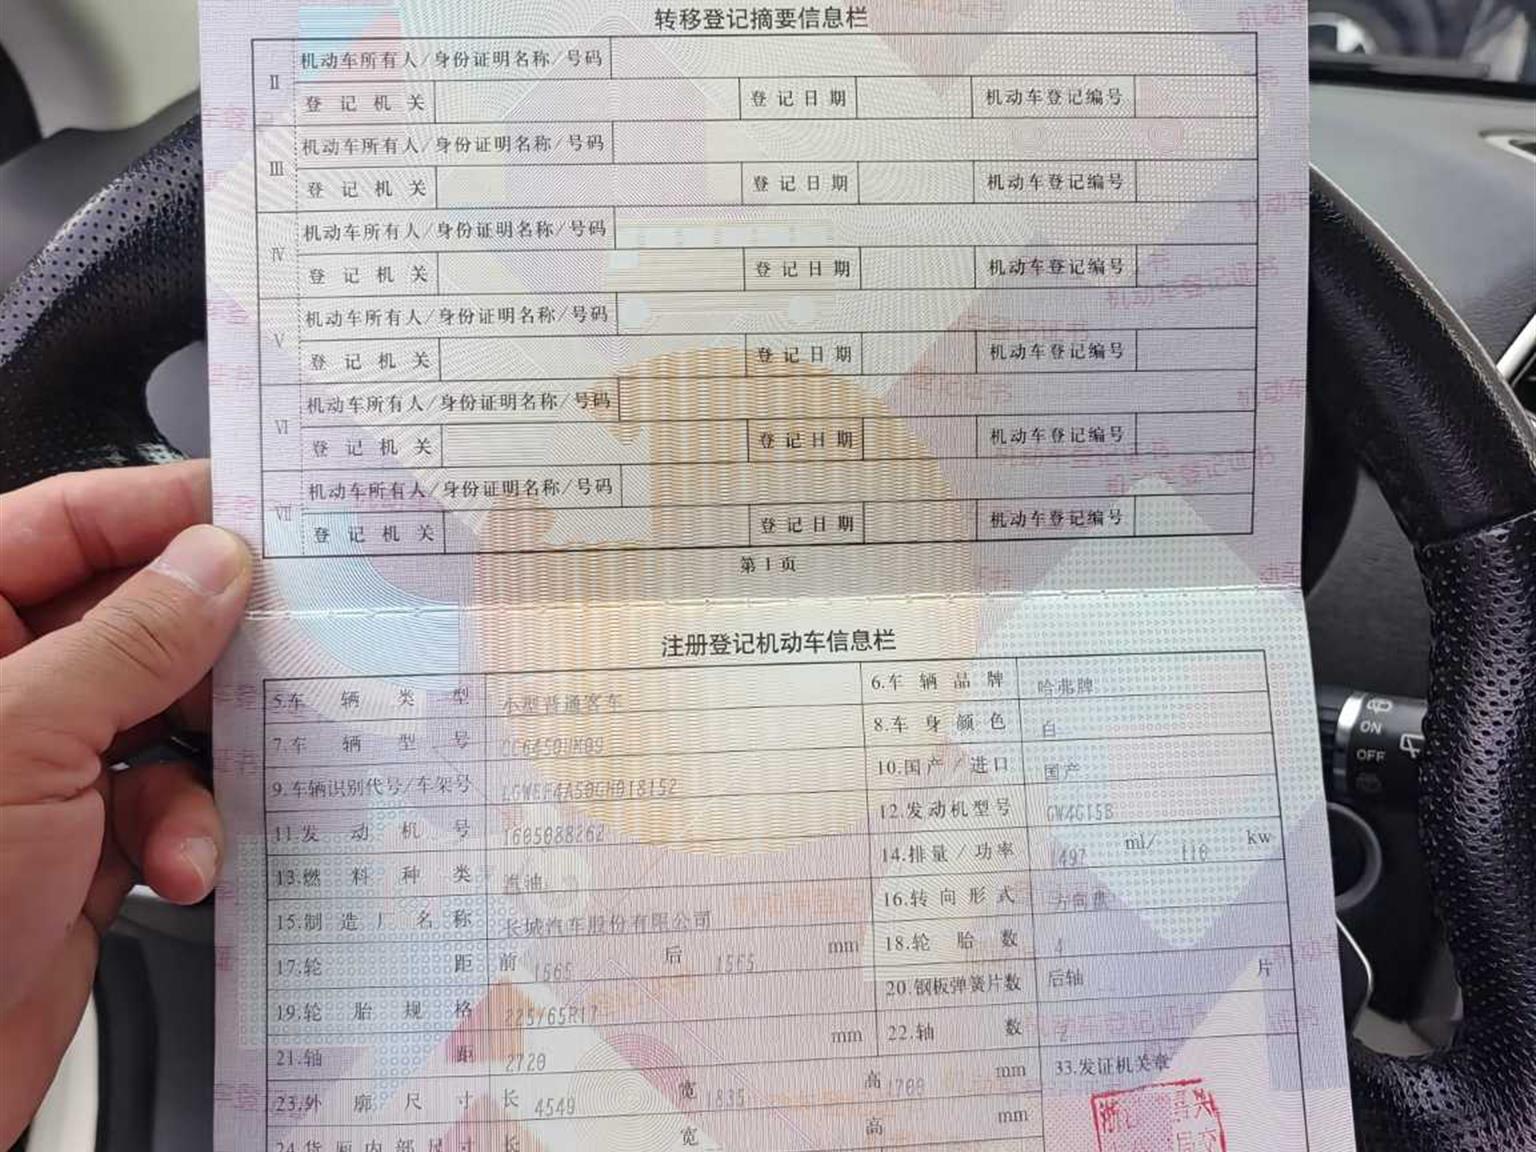 转移登记摘要信息栏
Ⅱ 机动车所有人/身份证明名称/号码
登记机关 登记日期 机动车登记编号
Ⅲ 机动车所有人/身份证明名称/号码
登记机关 登记日期 机动车登记编号
Ⅳ 机动车所有人/身份证明名称/号码
登记机关 登记日期 机动车登记编号
Ⅴ 机动车所有人/身份证明名称/号码
登记机关 登记日期 机动车登记编号
Ⅵ 机动车所有人/身份证明名称/号码
登记机关 登记日期 机动车登记编号
Ⅶ 机动车所有人/身份证明名称/号码
登记机关 登记日期 机动车登记编号
第1页
注册登记机动车信息栏
5.车辆类型 小型普通客车 6.车辆品牌 哈弗牌
7.车辆型号 8.车身颜色 白
9.车辆识别代号/车架号 10.国产/进口 国产
11.发动机号 1605088262 12.发动机型号 GW4G15B
13.燃料种类 汽油 14.排量/功率 1497 ml/ 110 kw
15.制造厂名称 长城汽车股份有限公司 16.转向形式 方向盘
17.轮距 前 1565 后 1565 mm 18.轮胎数 4
19.轮胎规格 225/65R17 20.钢板弹簧片数 后轴 片
21.轴距 2720 mm 22.轴数 2
23.外廓尺寸 长 4549 宽 1835 高 1700 mm 33.发证机关章
24.货厢内部尺寸 长 宽 高 mm
ON
OFF